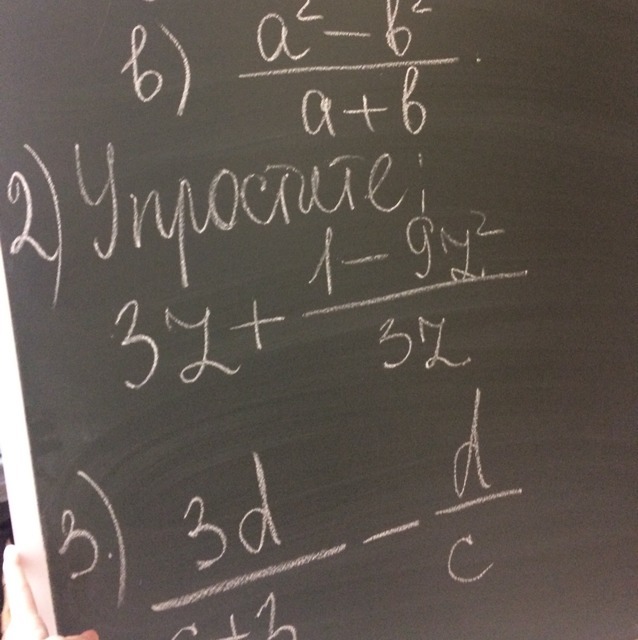 в) (a² - b²)/(a + b)
2) Упростите:
3z + (1 - 9z²)/(3z)
3.) 3d/(c + 3) - d/c